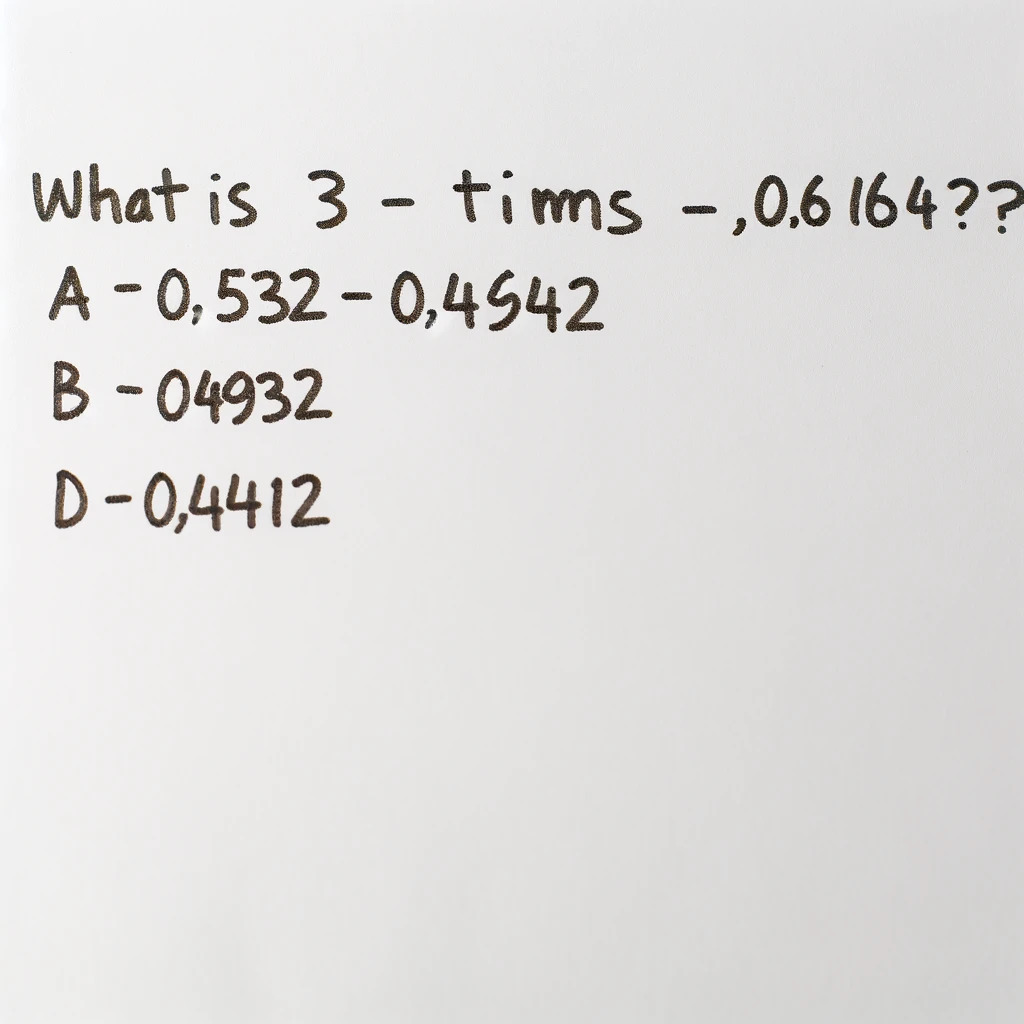 What is 3 - timms -,0.6164??
A - 0,532 - 0,4542
B - 04932
D - 0,4412